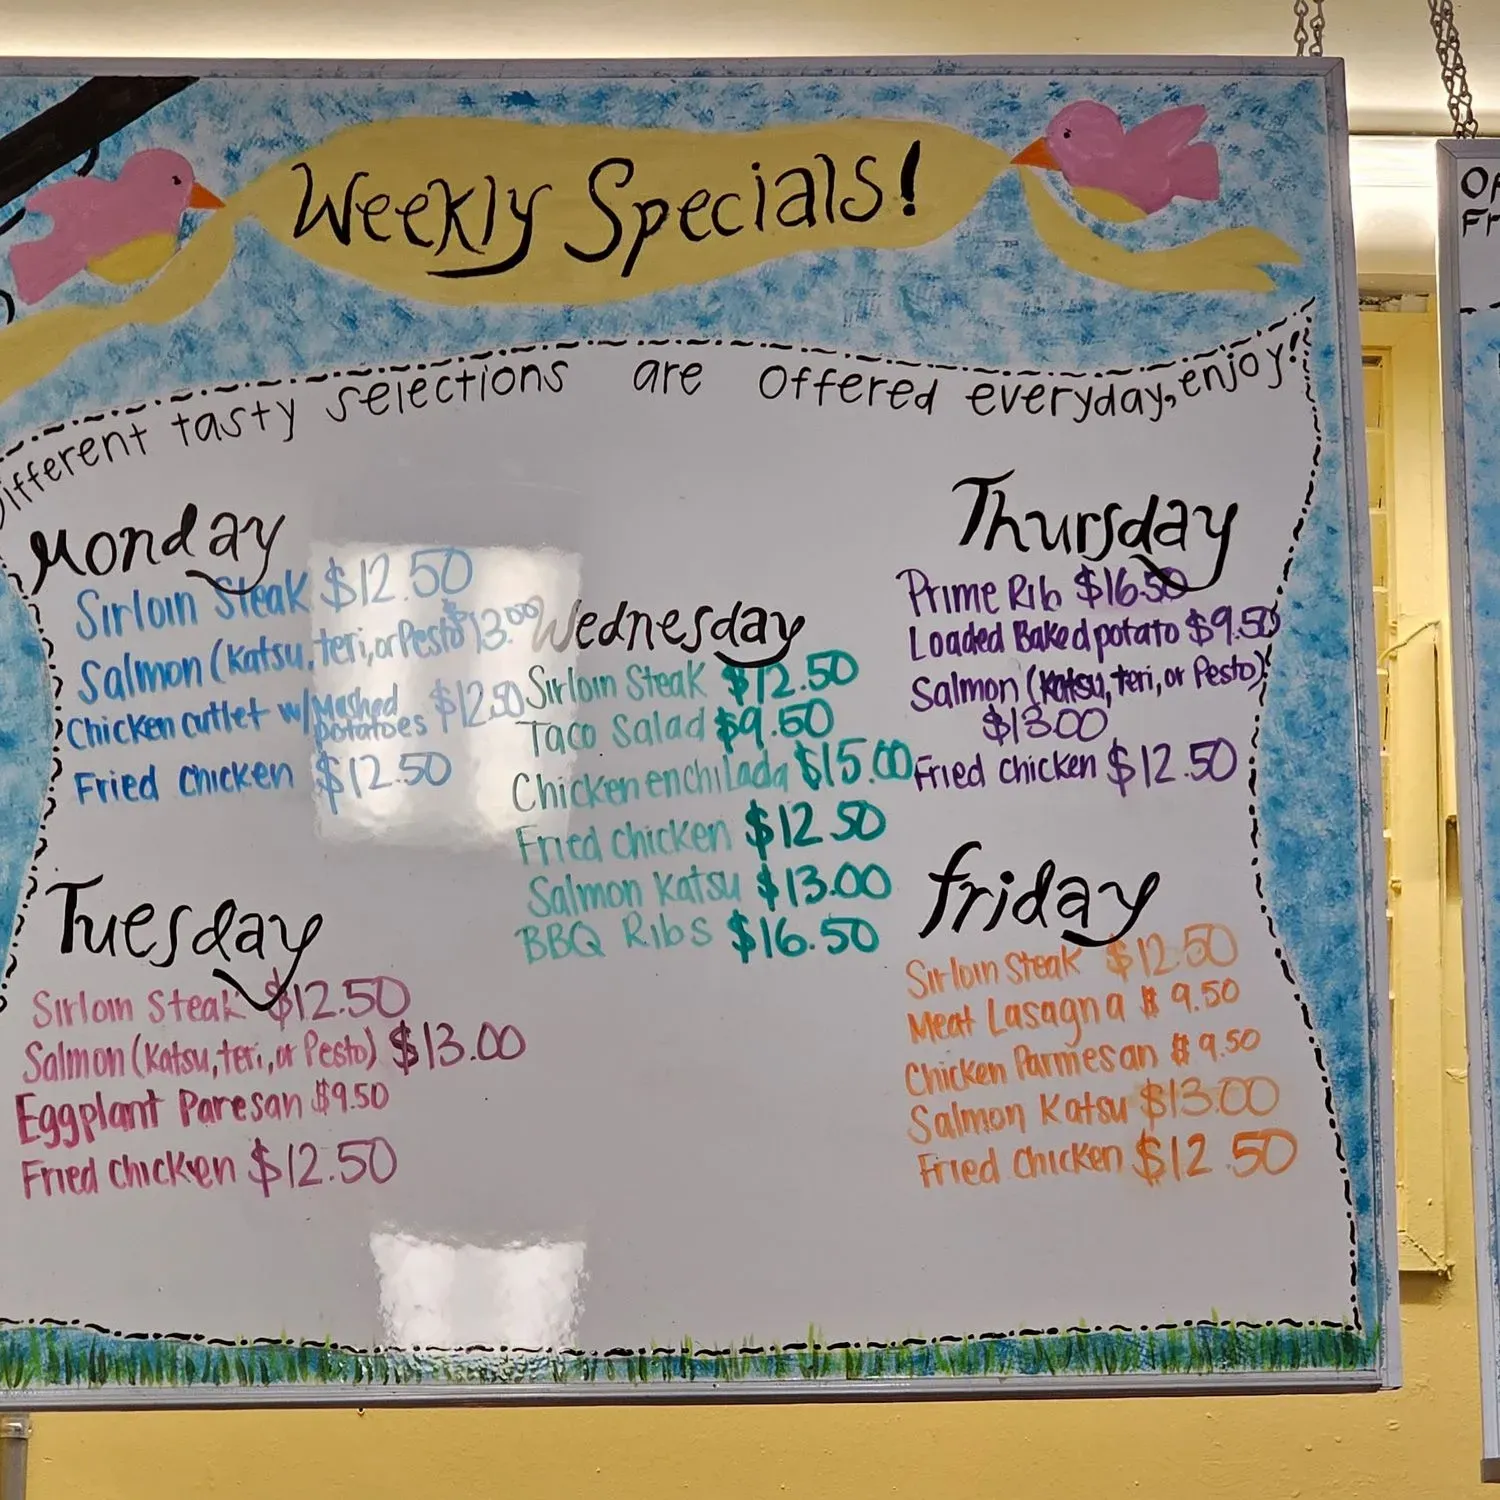 Weekly Specials!
Different tasty selections are offered everyday, enjoy!
Monday
Sirloin Steak $12.50
Salmon (Katsu, teri, or Pesto) $13.00
Chicken cutlet w/ Mashed potatoes $12.50
Fried chicken $12.50
Tuesday
Sirloin Steak $12.50
Salmon (Katsu, teri, or Pesto) $13.00
Eggplant Paresan $9.50
Fried chicken $12.50
Wednesday
Sirloin Steak $12.50
Taco Salad $9.50
Chicken enchilada $15.00
Fried chicken $12.50
Salmon Katsu $13.00
BBQ Ribs $16.50
Thursday
Prime Rib $16.50
Loaded Baked potato $9.50
Salmon (Katsu, teri, or Pesto)
$13.00
Fried chicken $12.50
Friday
Sirloin Steak $12.50
Meat Lasagna $9.50
Chicken Parmesan $9.50
Salmon Katsu $13.00
Fried chicken $12.50